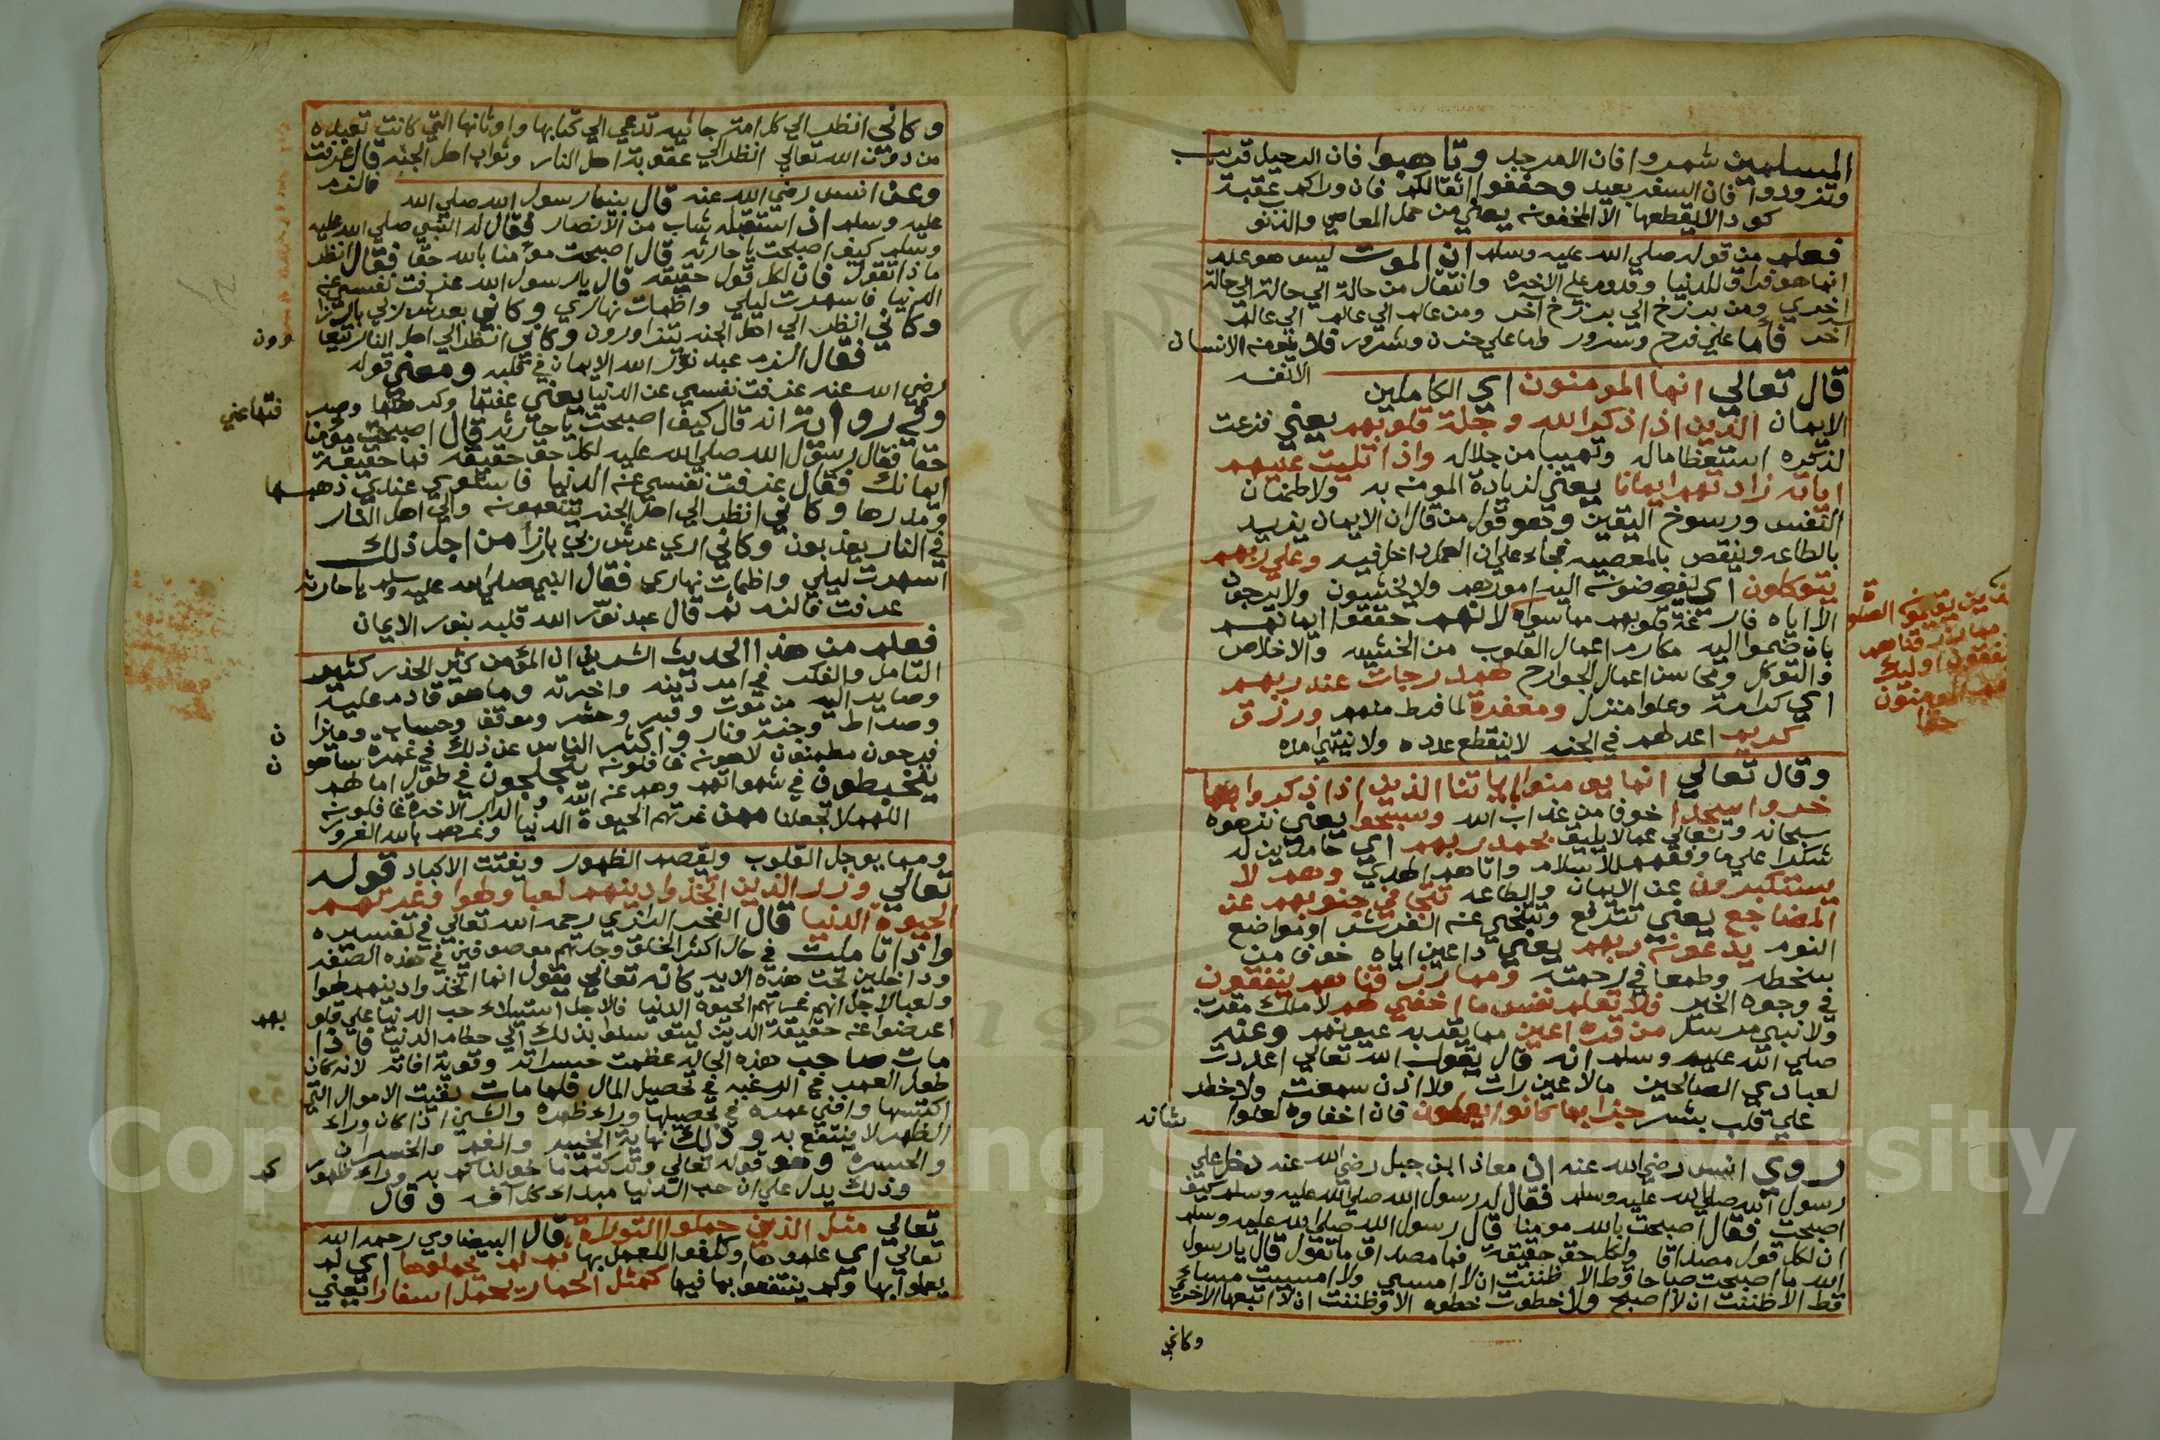 المسلمين شمروا فان الامر جد وتاهبوا فان الرحيل قريب
وتزودوا فان السفر بعيد وخففوا اثقالكم فان وراكم عقبة
كودا لا يقطعها الا المخفون يعني من حمل المعاصي والذنو
فعلم من قوله صلي الله عليه وسلم ان الموت ليس هو عدم
انما هو فراق للدنيا وقدوم علي الاخره وانتقال من حالة الي حالة الي حالة
اخري ومن برزخ الي برزخ آخر ومن عالم الي عالم الي عالم
آخر فاما علي فرح وسرور واما علي حزن وشرور فلا
قال تعالي انما المومنون اي الكاملين
الايمان الذين اذا ذكر الله وجلة قلوبهم يعني فزعت
لذكره استعظاما له وتهيبا من جلاله واذا تليت عليهم
اياته زادتهم ايمانا يعني لزيادة المومن به ولاطمنان
النفس ورسوخ اليقين وهو قول من قال ان الايمان يزيد
بالطاعه وينقص بالمعصيه فجاء علي ان العمل داخل فيه وعلي ربهم
يتوكلون اي يفوضون اليه امورهم ولا يخشون ولا يرجون
الا اياه فارغة قلوبهم مما سواه لانهم حققوا ايمانهم
بان ضموا اليه مكارم اعمال القلوب من الخشيه والاخلاص
والتوكل ومحاسن اعمال الجوارح لهم درجات عند ربهم
اي كرامة وعلوا منزل ومغفرة لما فرط منهم ورزق
كريم اعد لهم في الجنه لا ينقطع عدده ولا ينتهي امده
وقال تعالي انما يومنوا باياتنا الذين اذا ذكروا بها
خروا سجدا خوفا من عذاب الله وسبحوا يعني نزهوه
سبحانه وتعالي عما لا يليق بحمد ربهم اي حامدين له
شكرا علي ما وفقهم للاسلام واتاهم الهدي وهم لا
يستكبرون عن الايمان والطاعه تتجافي جنوبهم عن
المضاجع يعني ترتفع وتتنحي عن الفرش او مواضع
النوم يدعون ربهم يعني داعين اياه خوفا من
سخطه وطمعا في رحمته ومما رزقناهم ينفقون
في وجوه الخير فلا تعلم نفس ما اخفي لهم لا ملك مقرب
ولا نبي مرسل من قره اعين مما يقر به عيونهم وعنه
صلي الله عليه وسلم انه قال يقول الله تعالي اعددت
لعبادي الصالحين ما لا عين رات ولا اذن سمعت ولا خطر
علي قلب بشر جزا بما كانوا يعملون فان اخفاوه لعلوا شانه
روي انس رضي الله عنه ان معاذا بن جبل رضي الله عنه دخل علي
رسول الله صلي الله عليه وسلم فقال له رسول الله صلي الله عليه وسلم كيف
اصبحت فقال اصبحت بالله مومنا قال رسول الله صلي الله عليه وسلم
ان لكل قول مصداقا ولكل حق حقيقة فما مصداق ما تقول قال يا رسول
الله ما اصبحت صباحا قط الا ظننت ان لا امسي ولا امسيت مساء
قط الا ظننت ان لا اصبح ولا خطوت خطوه الا وظننت ان لا اتبعها الاخري
وكاني
الذين يقيمون الصلوة
ومما رزقناهم
ينفقون اوليك
هم المومنون
حقا
وكاني انظر الي كل امة جاثيه تدعي الي كتابها واوثانها التي كانت تعبده
من دون الله تعالي انظر الي عقوبة اهل النار وثواب اهل الجنه قال عرفت
فالزم
وعن انس رضي الله عنه قال بينما رسول الله صلي الله
عليه وسلم اذ استقبله شاب من الانصار فقال له النبي صلي الله عليه
وسلم كيف اصبحت يا حارثه قال اصبحت مومنا بالله حقا فقال انظر
ما ذا تقول فان لكل قول حقيقه قال يا رسول الله عزفت نفسي عن
الدنيا فاسهرت ليلي واظمات نهاري وكاني بعرش ربي بارزا
وكاني انظر الي اهل الجنه يتزاورون وكاني انظر الي اهل النار يتعا وون
فقال الزم عبد نور الله الايمان في قلبه ومعني قوله
رضي الله عنه عزفت نفسي عن الدنيا يعني عفتها وكرهتها وصد فتها عني
وفي رواية انه قال كيف اصبحت يا حارثه قال اصبحت مومنا
حقا فقال رسول الله صلي الله عليه لكل حق حقيقه فما حقيقة
ايمانك فقال عزفت نفسي عن الدنيا فاستوي عندي ذهبها
ومدرها وكاني انظر الي اهل الجنه يتنعمون والي اهل النار
في النار يعذبون وكاني اري عرش ربي بارزا من اجل ذلك
اسهرت ليلي واظمات نهاري فقال النبي صلي الله عليه وسلم يا حارثه
عرفت فالزم ثم قال عبد نور الله قلبه بنور الايمان
فعلم من هذا الحديث الشريف ان المؤمن كثير الحذر كثير
التامل والفكر في امر دينه واخرته وما هو قادم عليه
وصاير اليه من موت وقبر وحشر وموقف وحساب وميزا ن
وصراط وجنة ونار واكثر الناس عن ذلك في غمرة ساهو ن
فرحون مطمئنون لاهون غافلون يتلجلجون في طول امالهم
يتخبطون في شهواتهم وهم عن الله والدار الاخره غافلون
اللهم لا تجعلنا ممن غرتهم الحيوة الدنيا وغرهم بالله الغرور
ومما يوجل القلوب ويقصم الظهور ويفتت الاكباد قوله
تعالي وذر الذين اتخذوا دينهم لعبا ولهوا وغرتهم
الحيوة الدنيا قال الفخر الرازي رحمه الله تعالي في تفسيره
واذا تاملت في حال اكثر الخلق وجدتهم موصوفين في هذه الصفه
وداخلين تحت هذه الايه كانه تعالي يقول انما اتخذوا دينهم لهوا
ولعبا لاجل انهم غرتهم الحيوة الدنيا فلاجل استيلاء حب الدنيا علي قلو بهم
اعرضوا عن حقيقة الدين ليتوسلوا بذلك الي حطام الدنيا فاذا
مات صاحب هذه الحاله عظمت حسراته وقوية افاته لانه كان
طول العمر في الرغبه في تحصيل المال فلما مات بقيت الاموال التي
اكتسبها وافني عمره في تحصيلها وراء ظهره والشيئ اذا كان وراء
الظهر لا ينتفع به وذلك نهاية الخيبه والغم والخسران
والحسرة وهو قوله تعالي وتركتم ما خولناكم به وراء ظهور كم
وذلك يدل علي ان حب الدنيا مبداء كل آفه وقال
تعالي مثل الذين حملوا التوراة قال البيضاوي رحمه الله
تعالي اي علموها وكلفوا العمل بها ثم لم يحملوها اي لم
يعلموا بها ولم ينتفعوا بما فيها كمثل الحمار يحمل اسفارا يعني
Copyright © King Saud University
1957